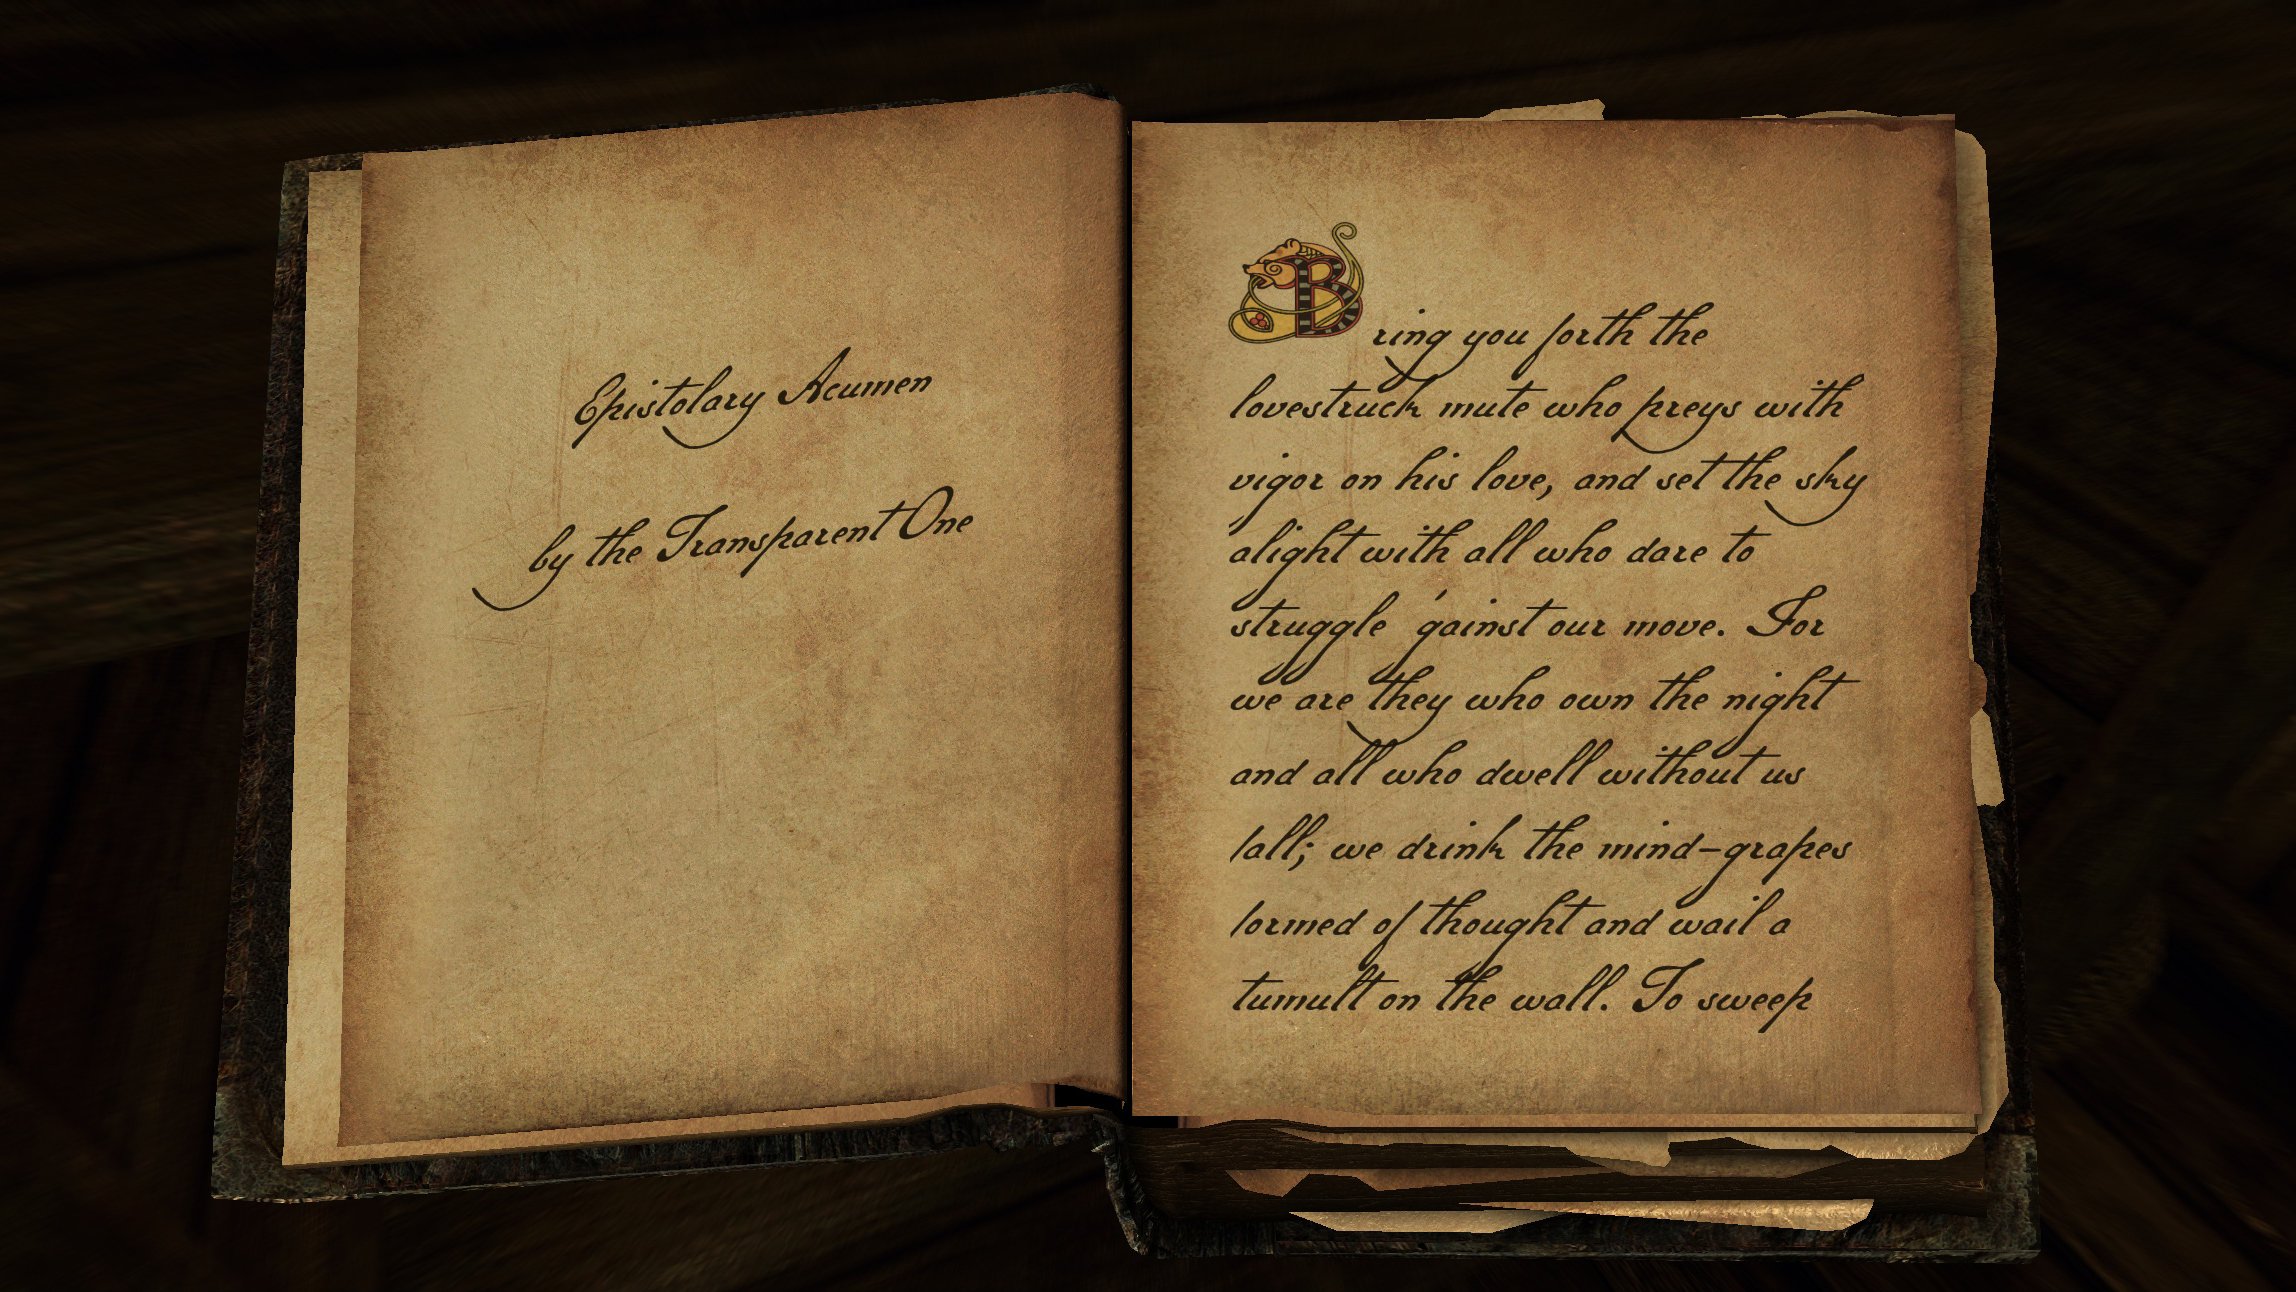 Epistolary Acumen
by the Transparent One
Bring you forth the
lovestruck mute who preys with
vigor on his love, and set the sky
alight with all who dare to
struggle 'gainst our move. For
we are they who own the night
and all who dwell without us
fall; we drink the mind-grapes
formed of thought and wail a
tumult on the wall. To sweep